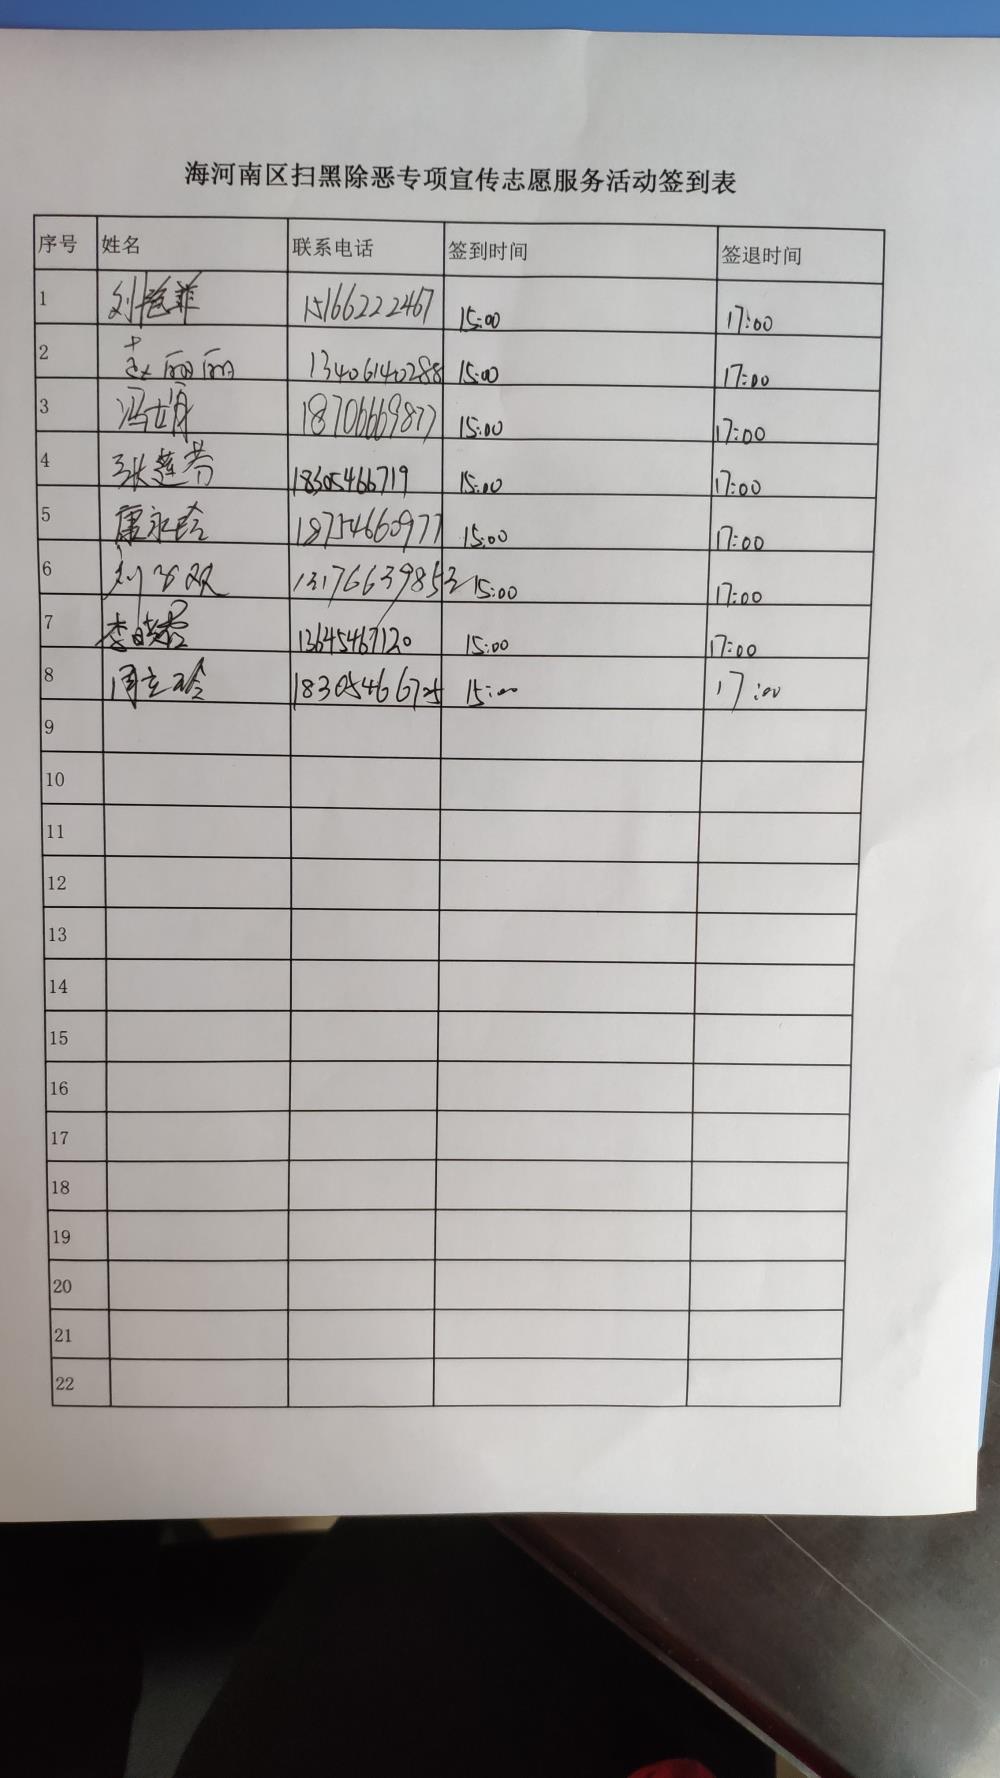 海河南区扫黑除恶专项宣传志愿服务活动签到表
序号 姓名 联系电话 签到时间 签退时间
1 刘艳菲 15166222467 15:00 17:00
2 赵丽丽 13406140288 15:00 17:00
3 冯婧 18706669877 15:00 17:00
4 张莲芬 18305466719 15:00 17:00
5 唐永玲 18754660977 15:00 17:00
6 刘 双 1317663985 15:00 17:00
7 李晓霞 13645467120 15:00 17:00
8 周立玲 18305466725 15:00 17:00
9
10
11
12
13
14
15
16
17
18
19
20
21
22